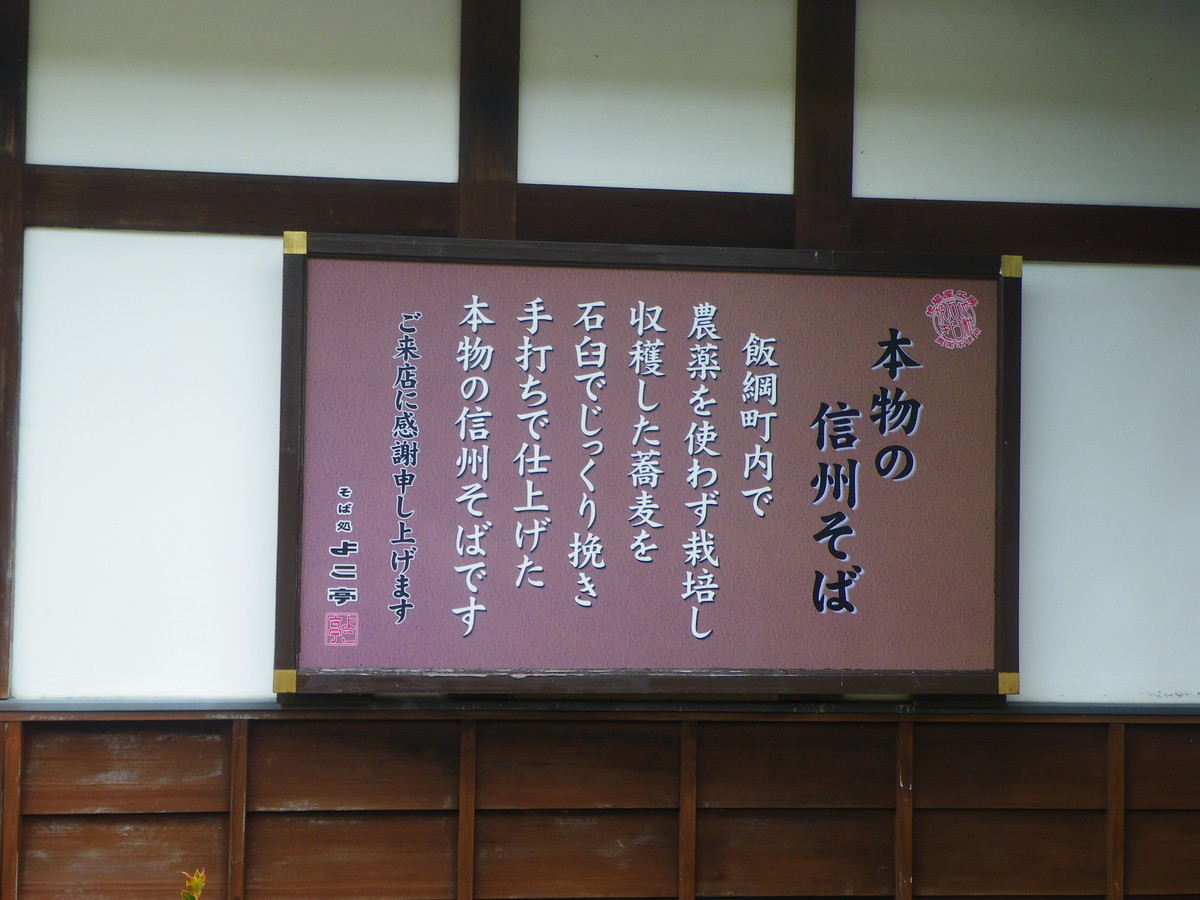 本物の
信州そば
飯綱町内で
農薬を使わず栽培し
収穫した蕎麦を
石臼でじっくり挽き
手打ちで仕上げた
本物の信州そばです
ご来店に感謝申し上げます
そば処 よこ亭